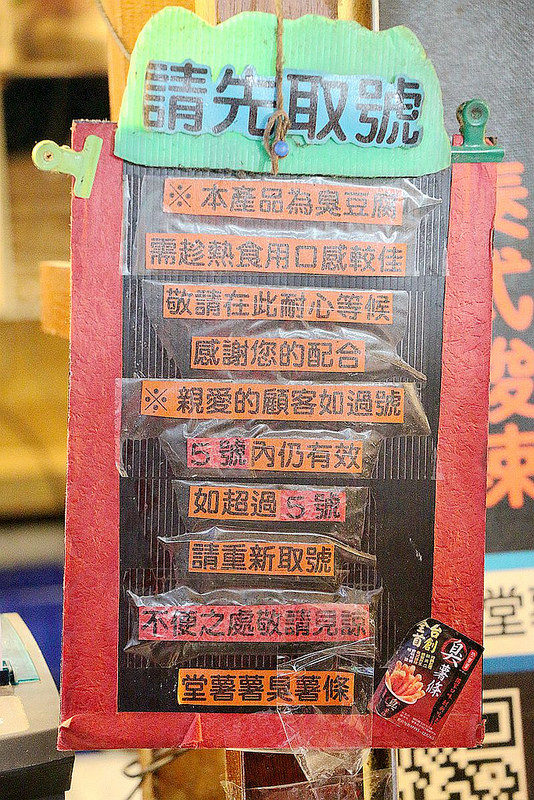 請先取號
※本產品為臭豆腐
需趁熱食用口感較佳
敬請在此耐心等候
感謝您的配合
※親愛的顧客如過號
5號內仍有效
如超過5號
請重新取號
不便之處敬請見諒
堂薯薯臭薯條
全台
首創
臭薯條
堂